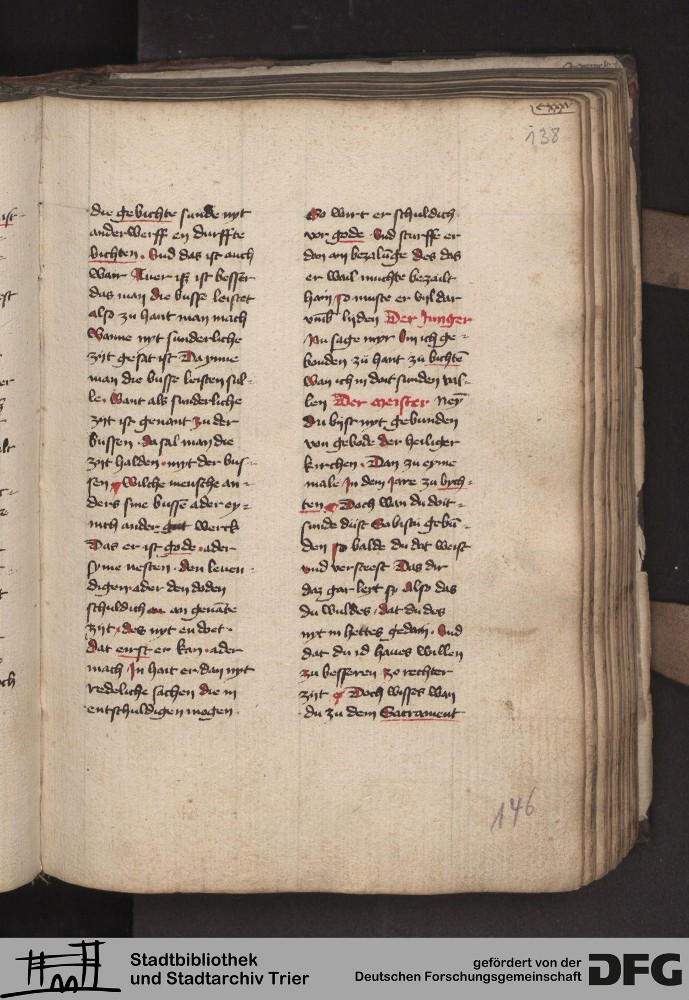 cxxxv
138
die gebichte sunde nyt
anderwerff en durffte
bichten . Vnd das ist auch
wair Auer isz ist besser
das man die busse leistet
also zu hant man mach
Wanne nyt sunderliche
zijt gesat ist Da ynne
man die busse leisten sul-
le . Want als sunderliche
zijt ist genant zu der
bussen . da sal man die
zijt halden . myt der bus-
sen Wilche mensche an-
ders sine busse ader ey-
nich ander gut werck
Das er ist gode . ader
syme nesten . den leuen-
digen ader den doden
schuldich an genante
zijt . des nyt en doet .
dat ernst er kan . ader
mach In hait er dan nyt
redeliche sachen die in
entschuldigen mogen
So wirt er schuldich
vor gode Vnd sturffe er
dan an bezalunge des das
er wail muchte bezailt
hain so muste er vyl dar
vmb lijden Der Junger
Nu sage myr bin ich ge-
bonden zu hant zu bichten
Wan ich in doit sunden val-
len Der meister Neyn
du bijst nyt gebunden
von gebode der heiliger
kirchen . Dan zu eyme
male In dem Jare zu bych-
ten Doch wan du doit-
sunde duist So bistu gebun-
den so balde du dat weist
vnd versteest Das dir
daz gar leit sy Also das
du wuldes dat du des
nyt in hettes gedain . Vnd
dat du id haues willen
zu besseren zo rechter
zijt Doch wisses wan
du zu dem Sacrament
146
Stadtbibliothek
und Stadtarchiv Trier
gefördert von der
Deutschen Forschungsgemeinschaft
DFG